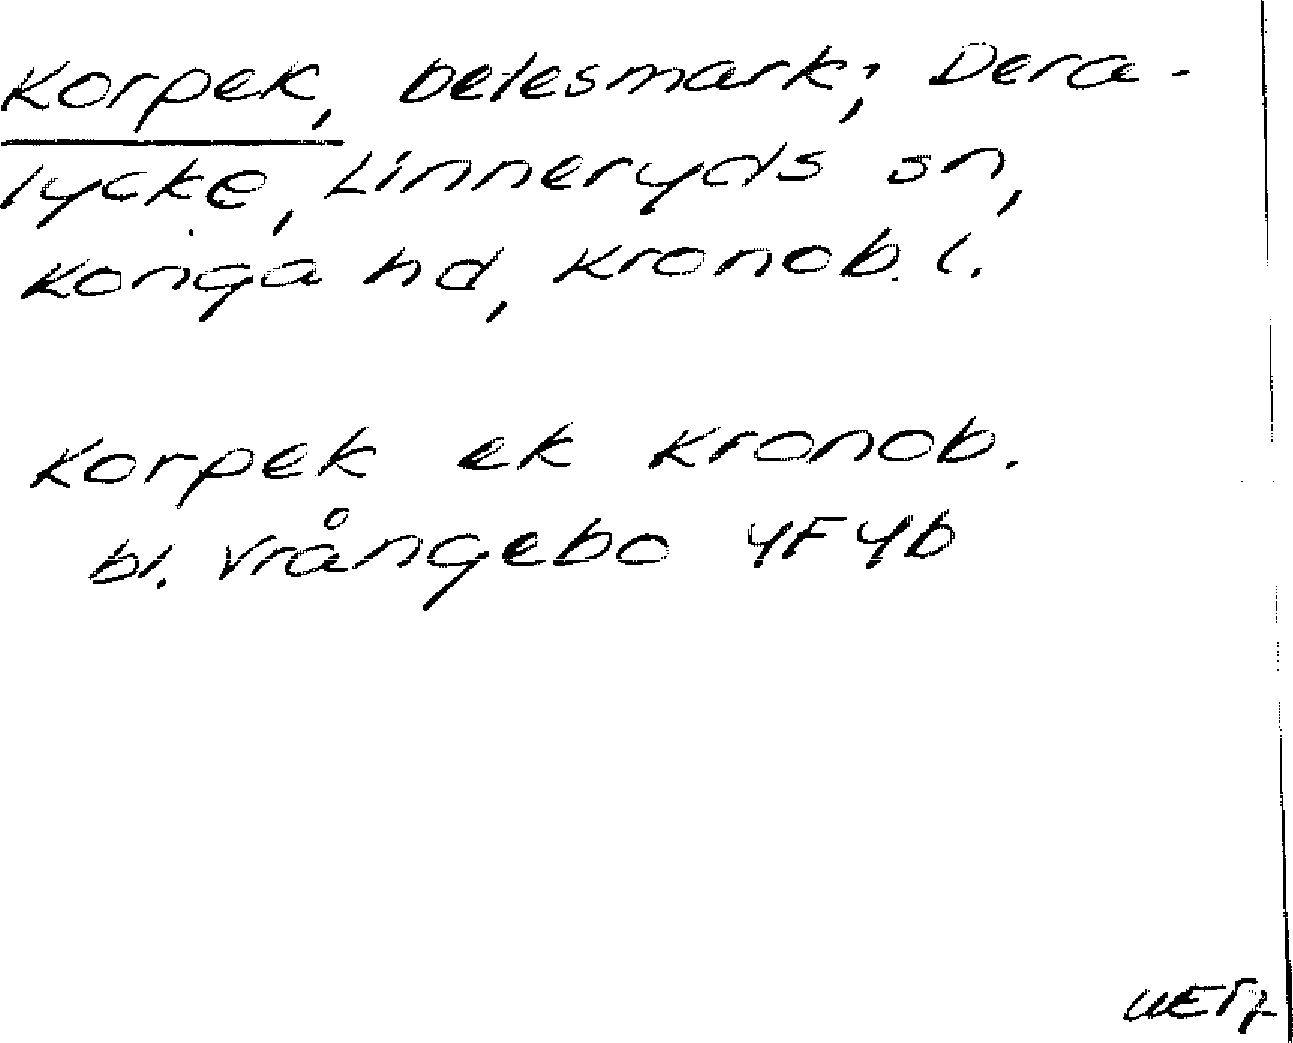 Korpek, betesmark; Dera-
lycke, Linneryds sn,
Konga hd, Kronob. l.
Korpek ek Kronob.
bl. Vrångebo 4F4b